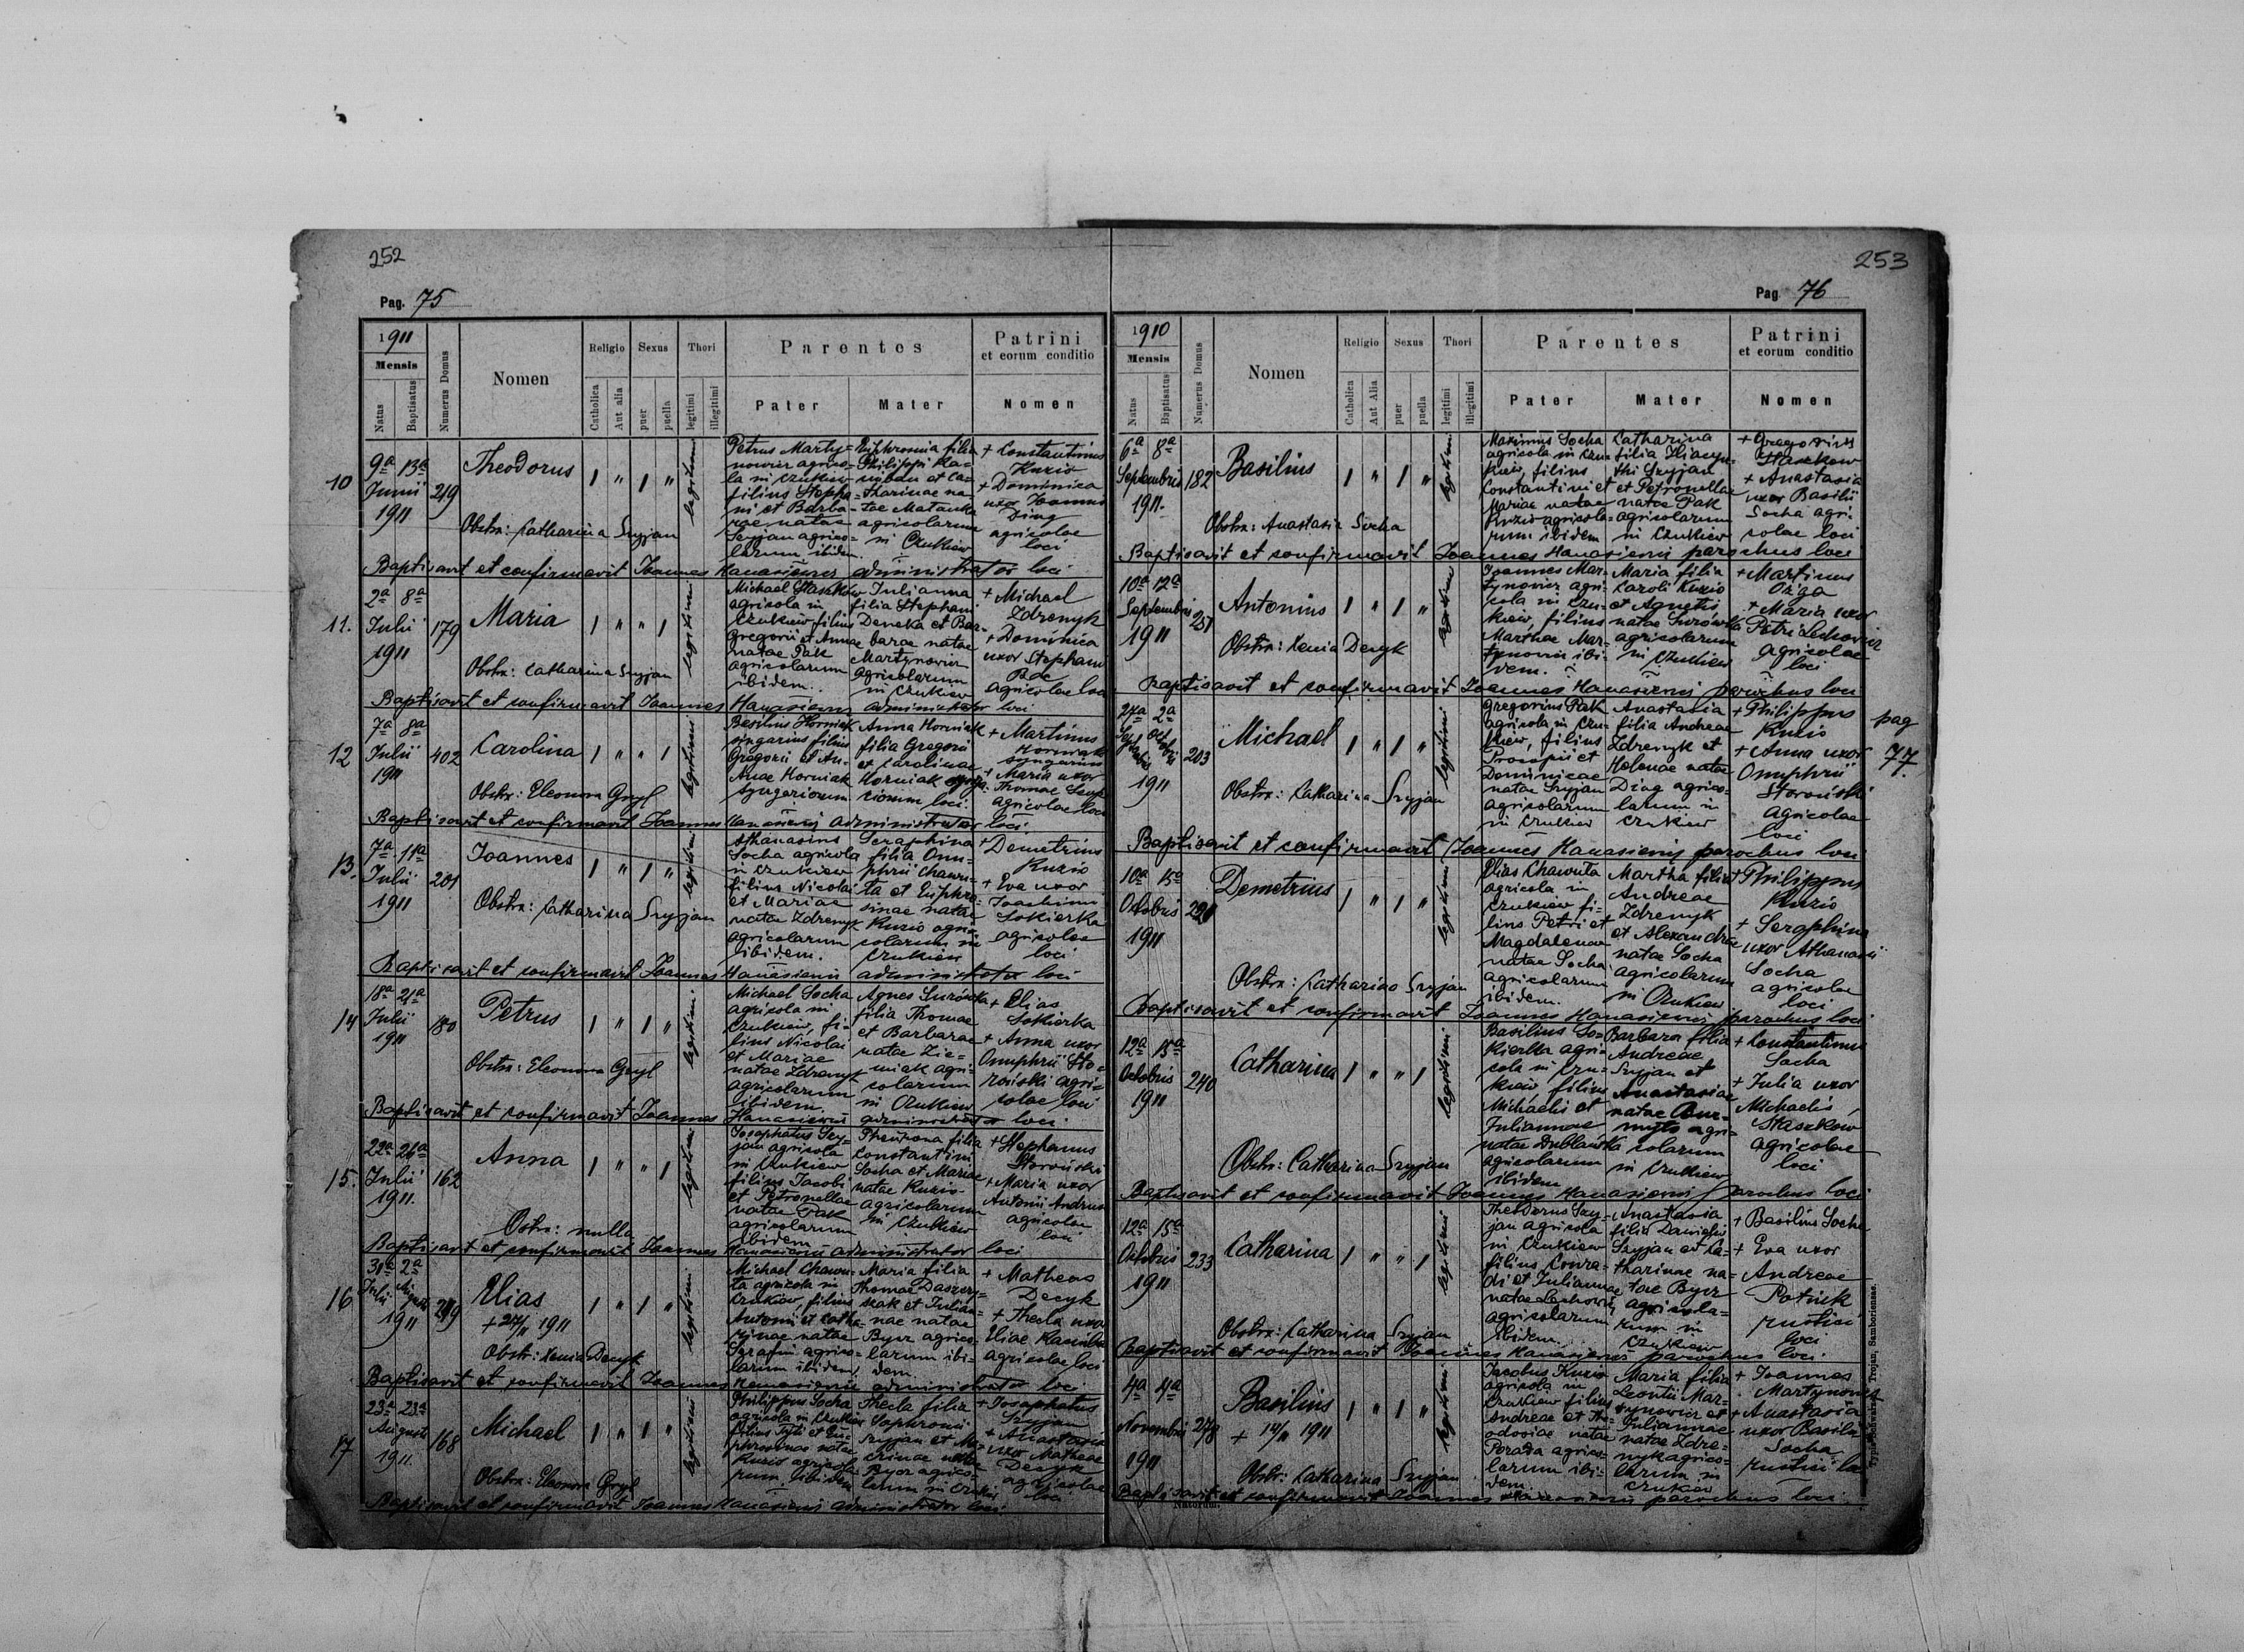 252
Pag. 75
1911
Mensis
Natus
Baptisatus
Numerus Domus
Nomen
Religio
Catholica
Aut alia
Sexus
puer
puella
Thori
legitimi
illegitimi
Parentes
Pater
Mater
Patrini
et eorum conditio
Nomen
10
9a 13a
Junii
1911
219
Theodorus
legitimi
Petrus Marty=
nowicz agrico=
la in Czukiew
filius Stepha=
ni et Barba=
rae natae
Szyjan agrico=
larum ibidem.
Euphrosina filia
Philippi
et Ca=
tharinae na=
tae
agricolarum
in Czukiew
+ Constantinus
Kuzio
+ Dominica
uxor Joannis
Ding
agricolae
loci
Obstr: Catharina Szyjan
Baptisavit et confirmavit Joannes Hanasiewij administrator loci
11.
2a 8a
Julii
1911
179
Maria
legitimi
Michael Staszków
agricola in
Czukiew filius
Gregorii et Annae
natae Pak
agricolarum
ibidem.
Julianna
filia Stephani
Deneka et Bar=
barae natae
Martynowicz
agricolarum
in Czukiew
+ Michael
Zdrenyk
+ Dominica
uxor Stephani
agricolae loci
Obstr: Catharina Szyjan
Baptisavit et confirmavit Joannes Hanasiewij administrator loci
12
7a 8a
Julii
1911
402
Carolina
legitimi
Basilius Horniak
singarius filius
Gregorii et An=
nae Horniak
syngariorum
Anna Horniak
filia Gregorii
et Carolinae
Horniak
riorum loci.
+ Martinus
Horniak
syngarius
+ Maria uxor
Thomae
agricolae loci
Obstr: Eleonora Gryl
Baptisavit et confirmavit Joannes Hanasiewij administrator loci
13.
7a 11a
Julii
1911
201
Joannes
legitimi
Athanasius
Socha agricola
in Czukiew
filius Nicolai
et Mariae
natae Zdrenyk
agricolarum
ibidem.
Seraphina
filia Onu=
phrii Chawu=
ta et Euphro=
sinae natae
Kuzio agri=
colarum in
Czukiew
+ Demetrius
Kuzio
+ Eva uxor
Joachimi
Sokierka
agricolae
loci
Obstr: Catharina Szyjan
Baptisavit et confirmavit Joannes Hanasiewij administrator loci
14
18a 21a
Julii
1911
180
Petrus
legitimi
Michael Socha
agricola in
Czukiew, fi=
lius Nicolai
et Mariae
natae Zdrenyk
agricolarum
ibidem.
Agnes Surówka
filia Thomae
et Barbarae
natae Zie=
niak agri=
colarum
in Czukiew
+ Elias
Sokierka
+ Anna uxor
Onuphrii Sto=
roński agri=
colae loci
Obstr: Eleonora Gryl
Baptisavit et confirmavit Joannes Hanasiewij administrator loci.
15.
22a 26a
Julii
1911.
162
Anna
legitimi
Josaphatus Szy=
jan agricola
in Czukiew
filius Jacobi
et Petronellae
natae Pak
agricolarum
ibidem
filia
Constantini
Socha et Mariae
natae Kuzio
agricolarum
in Czukiew
+ Stephanus
Storoński
+ Maria uxor
Antonii
agricolae
loci
Ostr: nulla
Baptisavit et confirmavit Joannes Hanasiewij administrator loci
16
31a 2a
Julii Augusti
1911
219
Elias
+ 27/11 1911
legitimi
Michael Chawu=
ta agricola in
Czukiew, filius
Antonii et Catha=
rinae natae
Serafin agrico=
larum ibidem
Maria filia
Thomae Daszczy=
szak et Julian=
nae natae
Bycz agrico=
larum ibi=
dem
+ Matheas
Decyk
+ Thecla uxor
Eliae
agricolae loci
Obstr: Xenia Decyk
Baptisavit et confirmavit Joannes Hanasiewij administrator loci
17
23a 23a
Augusti
1911.
168
Michael
legitimi
Philippus Socha
agricola in Czukiew
filius Titi et Eu=
phrosinae natae
Kuzio agricola=
rum ibidem
Thecla filia
Sophronii
Szyjan et Ma=
rinae natae
Bycz agrico=
larum in Czukiew
+ Josaphatus
Szyjan
+ Anastasia
uxor Matheae
Decyk
agricolae
loci
Obstr: Eleonora Gryl
Baptisavit et confirmavit Joannes Hanasiewij administrator loci.
253
Pag 76
1910
Mensis
Natus
Baptisatus
Numerus Domus
Nomen
Religio
Catholica
Aut Alia
Sexus
puer
puella
Thori
legitimi
illegitimi
Parentes
Pater
Mater
Patrini
et eorum conditio
Nomen
6a 8a
Septembris
1911.
182
Basilius
legitimi
Maximus Socha
agricola in Czu=
kiew, filius
Constantini et
Mariae natae
Kuzio agricola=
rum ibidem
Catharina
filia Hiacyn=
thi Szyjan
et Petronellae
natae Pak
agricolarum
in Czukiew
+ Gregorius
Staszkow
+ Anastasia
uxor Basilii
Socha agri=
colae loci
Obstr: Anastasia Socha
Baptisavit et confirmavit Joannes Hanasiewij parochus loci
10a 12a
Septembris
1911
251
Antonius
legitimi
Joannes Mar=
tynowicz agri=
cola in Czu=
kiew, filius
Marthae Mar=
tynowicz ibi=
dem.
Maria filia
Caroli Kuzio
et Agnetis
natae Surówka
agricolarum
in Czukiew
+ Martinus
Ożga
+ Maria uxor
Petri Lechowicz
agricolae
loci
Obstr: Xenia Decyk
Baptisavit et confirmavit Joannes Hanasiewij parochus loci
27a 2a
Septembris Octobris
1911
203
Michael
legitimi
Gregorius Pak
agricola in Czu=
kiew, filius
Procopii et
Dominicae
natae Szyjan
agricolarum
in Czukiew
Anastasia
filia Andreae
Zdrenyk et
Helenae natae
Ding agrico=
larum in
Czukiew
+ Philippus
Kuzio
+ Anna uxor
Onuphrii
Storoński
agricolae
loci
pag
77.
Obstr: Catharina Szyjan
Baptisavit et confirmavit Joannes Hanasiewij parochus loci
10a 15a
Octobris
1911
Demetrius
legitimi
Elias Chawuta
agricola in
Czukiew fi=
lius Petri et
Magdalenae
natae Socha
agricolarum
ibidem.
Martha filia
Andreae
Zdrenyk
et Alexandrae
natae Socha
agricolarum
in Czukiew
+ Philippus
Kuzio
+ Seraphina
uxor Athanasii
Socha
agricolae
loci
Obstr: Catharina Szyjan
Baptisavit et confirmavit Joannes Hanasiewij parochus loci
12a 15a
Octobris
1911
240
Catharina
legitimi
Basilius So=
kierka agri=
cola in Czu=
kiew, filius
Michaelis et
Juliannae
natae Dublańska
agricolarum
ibidem
Barbara filia
Andreae
Szyjan et
Anastasiae
natae
agri=
colarum
in Czukiew
+ Constantinus
Socha
+ Julia uxor
Michaelis
Staszkow
agricolae
loci
Obstr: Catharina Szyjan
Baptisavit et confirmavit Joannes Hanasiewij parochus loci
12a 15a
Octobris
1911
233
Catharina
legitimi
Theodorus Szy=
jan agricola
in Czukiew
filius Conra=
di et Juliannae
natae Lechowicz
agricolarum
ibidem.
Anastasia
filia Danielis
Szyjan et Ca=
tharinae na=
tae Bycz
agricola=
rum in
Czukiew
+ Basilius Socha
+ Eva uxor
Andreae
Potiuk
rustici
loci
Obstr: Catharina Szyjan
Baptisavit et confirmavit Joannes Hanasiewij parochus loci.
4a 4a
Novembris
1911
278
Basilius
+ 14/11 1911
legitimi
Jacobus Kuzio
agricola in
Czukiew filius
Andreae et The=
odosiae natae
Porada agrico=
larum ibi=
dem.
Maria filia
Leontii Mar=
tynowicz et
Juliannae
natae Zdre=
nyk agrico=
larum in
Czukiew
+ Joannes
Martynowicz
+ Anastasia
uxor Basilii
Socha
rustici
Obstr: Catharina Szyjan
Baptisavit et confirmavit Joannes Hanasiewij parochus loci
Natorum.
Typis Schwarz et Trojan, Samboriensae.